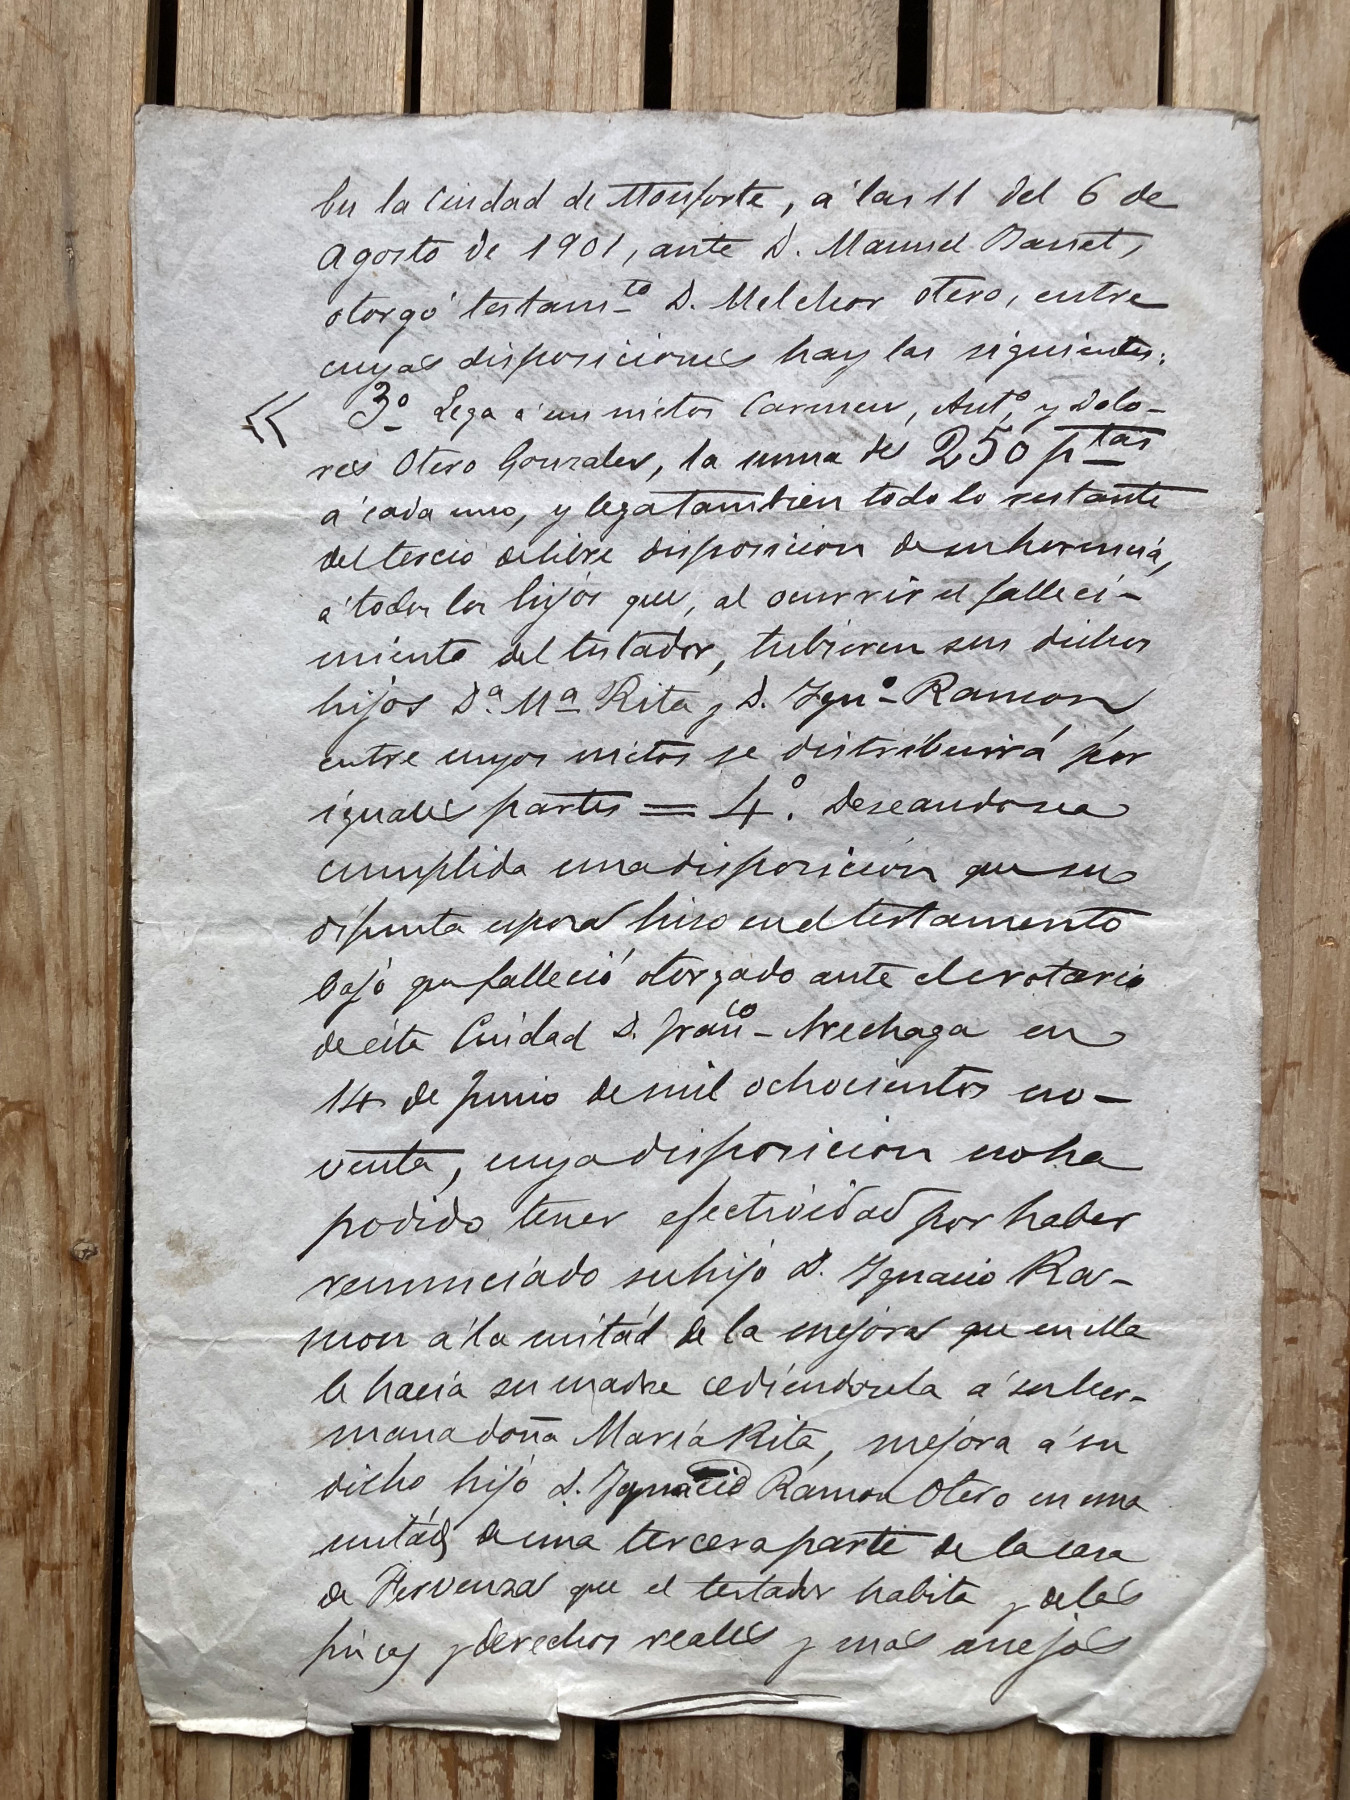 En la Ciudad de Monforte, á las 11 del 6 de
Agosto de 1901, ante D. Manuel Banet,
otorgó testam.to D. Melchor Otero, entre
cuyas disposiciones hay las siguientes:
« 3º Lega á sus nietos Carmen, Antº y Dolo-
res Otero Gonzalez, la suma de 250 p.tas
á cada uno, y lega tambien todo lo restante
del tercio de libre disposicion de su herencia,
á todos los hijos que, al ocurrir el falleci-
miento del testador, tubieren sus dichos
hijos D.ª M.ª Rita y D. Ignº Ramon
entre cuyos nietos se distribuirá por
iguales partes = 4º. Deseando sea
cumplida una disposición que su
difunta esposa hizo en el testamento
bajo que falleció otorgado ante el notario
de esta Ciudad D. Franco Arechaga en
14 de Junio de mil ochocientos no-
venta, cuya disposicion no ha
podido tener efectividad por haber
renunciado su hijo D. Ignacio Ra-
mon á la mitád de la mejora que en ella
le hacía su madre cediéndosela á su her-
mana doña María Rita, mejora á su
dicho hijo D. Ignacio Ramon Otero en una
mitád de una tercera parte de la casa
de Fervenza que el testador habita y de las
fincas y derechos reales y mas anejos